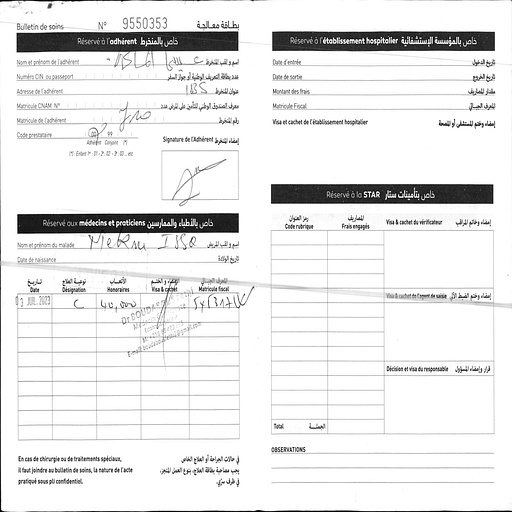 Bulletin de soins N° 9550353 بطاقة معالجة
Réservé à l'adhérent خاص بالمنخرط
Nom et prénom de l'adhérent اسم و لقب المنخرط
Numéro CIN ou passeport عدد بطاقة التعريف الوطنية أو جواز السفر
Adresse de l'adhérent IBS عنوان المنخرط
Matricule CNAM N° معرف الصندوق الوطني للتأمين على المرض عدد
Matricule de l'adhérent رقم المنخرط
Code prestataire 00 99
Adhérent Conjoint (*)
(*) : Enfant 1er : 01 - 2 : 02 - 3 : 03 ... etc
Signature de l'Adhérent إمضاء المنخرط
Réservé aux médecins et praticiens خاص بالأطباء والممارسين
Nom et prénom du malade اسم و لقب المريض
Date de naissance تاريخ الولادة
تاريخ نوعية العلاج الأتعاب الإمضاء و الختم المعرف الجبائي
Date Désignation Honoraires Visa & cachet Matricule fiscal
03 JUIL. 2023 C 40,000
En cas de chirurgie ou de traitements spéciaux,
il faut joindre au bulletin de soins, la nature de l'acte
pratiqué sous pli confidentiel.
في حالات الجراحة أو العلاج الخاص
يجب مصاحبة بطاقة العلاج، بنوع العمل المنجز،
في ظرف سري.
Réservé à l'établissement hospitalier خاص بالمؤسسة الإستشفائية
Date d'entrée تاريخ الدخول
Date de sortie تاريخ الخروج
Montant des frais مقدار المصاريف
Matricule Fiscal المعرف الجبائي
Visa et cachet de l'établissement hospitalier إمضاء وختم المستشفى أو المصحة
Réservé à la STAR خاص بتأمينات ستار
رمز العنوان المصاريف
Code rubrique Frais engagés
Visa & cachet du vérificateur إمضاء وخاتم المراقب
Visa & cachet de l'agent de saisie إمضاء وختم الضبط الآلي
Décision et visa du responsable قرار وإمضاء المسؤول
Total الجملة
OBSERVATIONS